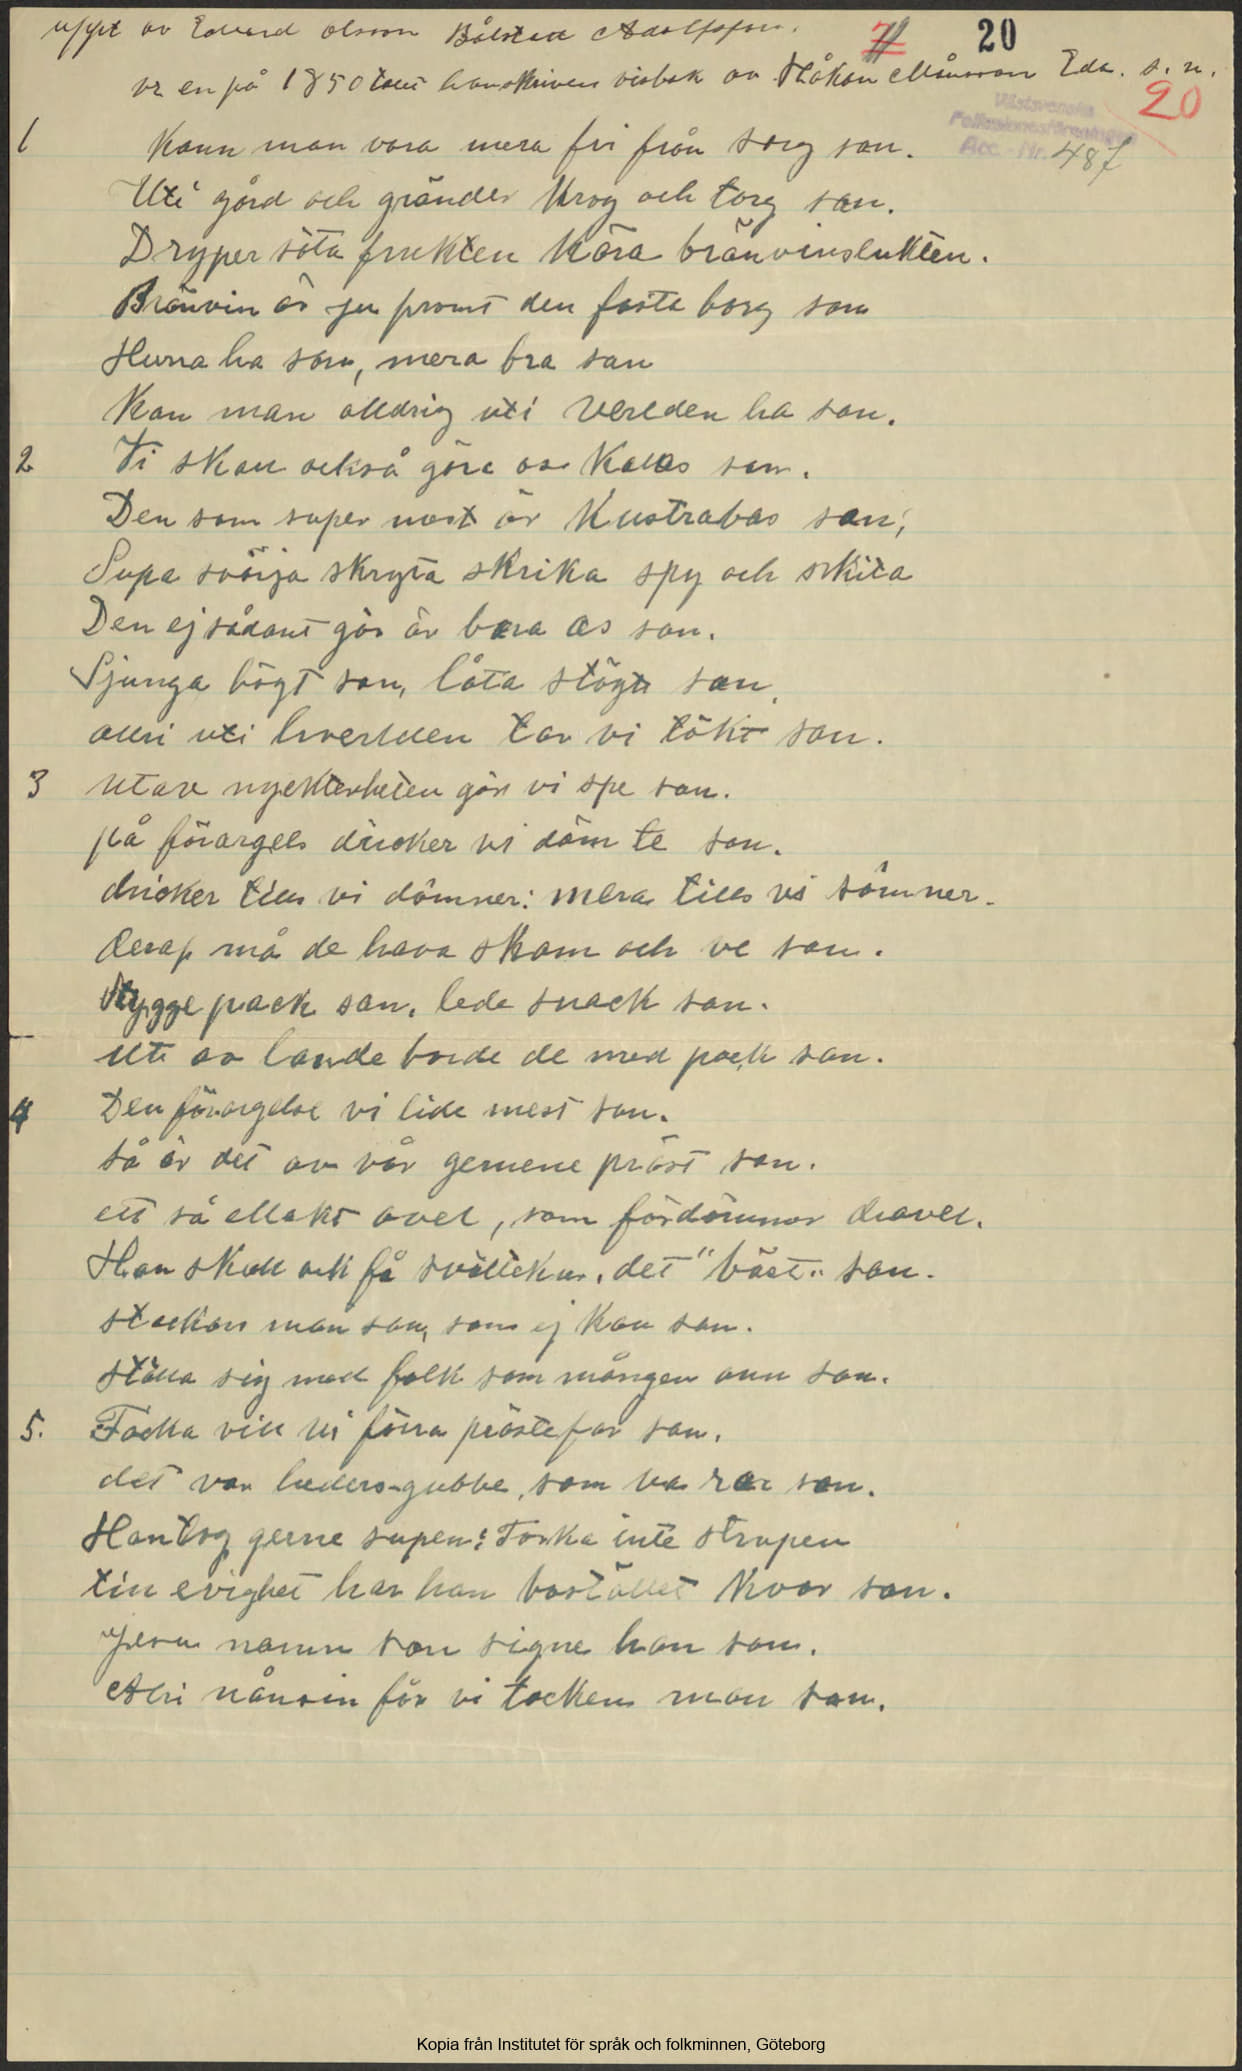 uppt av Edvard Olsson Bålstad Adolfsfors.
20
ur en på 1850 talet hanskriven visbok av Håkan Månsson Eda. s. n.
20
Västsvenska
Folkminnesföreningen
Acc. Nr. 487
1 Kann man vara mera fri från sorg san.
Uti gård och gränder Krog och torg san.
Dryper söta frukten kära bränvinslukten.
Bränvin är ju promt den fasta borg san
Hurra ha san, mera bra san
Kan man alldrig uti verlden ha san.
2 Vi skall också göra oss Kalas san.
Den som super mest är Kustrabas san,
Supa svärja skryta skrika spy och skita
Den ej sådant gör är bara as san.
Sjunga högt san, låta stögt san,
alldri uti hverlden tar vi tökt san.
3 Utav nyckterheten gör vi spe san.
på förargels dricker vi döm te san.
dricker tills vi dömner: mera tills vi sömner.
derap må de hava skam och ve san.
Stygge pack san, lede snack san.
Ut av lande borde de med pack san.
4 Den förargelse vi lide mest san.
så är det av vår gemene präst san.
ett så ellakt avel, som fördömmer dravel.
Han skall ock få svältekur, det "bäst" san.
stackars man san, som ej kan san.
ställa sig med folk som mången ann san.
5. Täcka vill vi förra prästefar san.
det var heders-gubbe, som va rar san.
Han tog gerne supen: Torka inte strupen
till evighet har han bostället kvar san.
Jesu namn san signe han san.
Alri nånsin får vi tocken man san.
Kopia från Institutet för språk och folkminnen, Göteborg